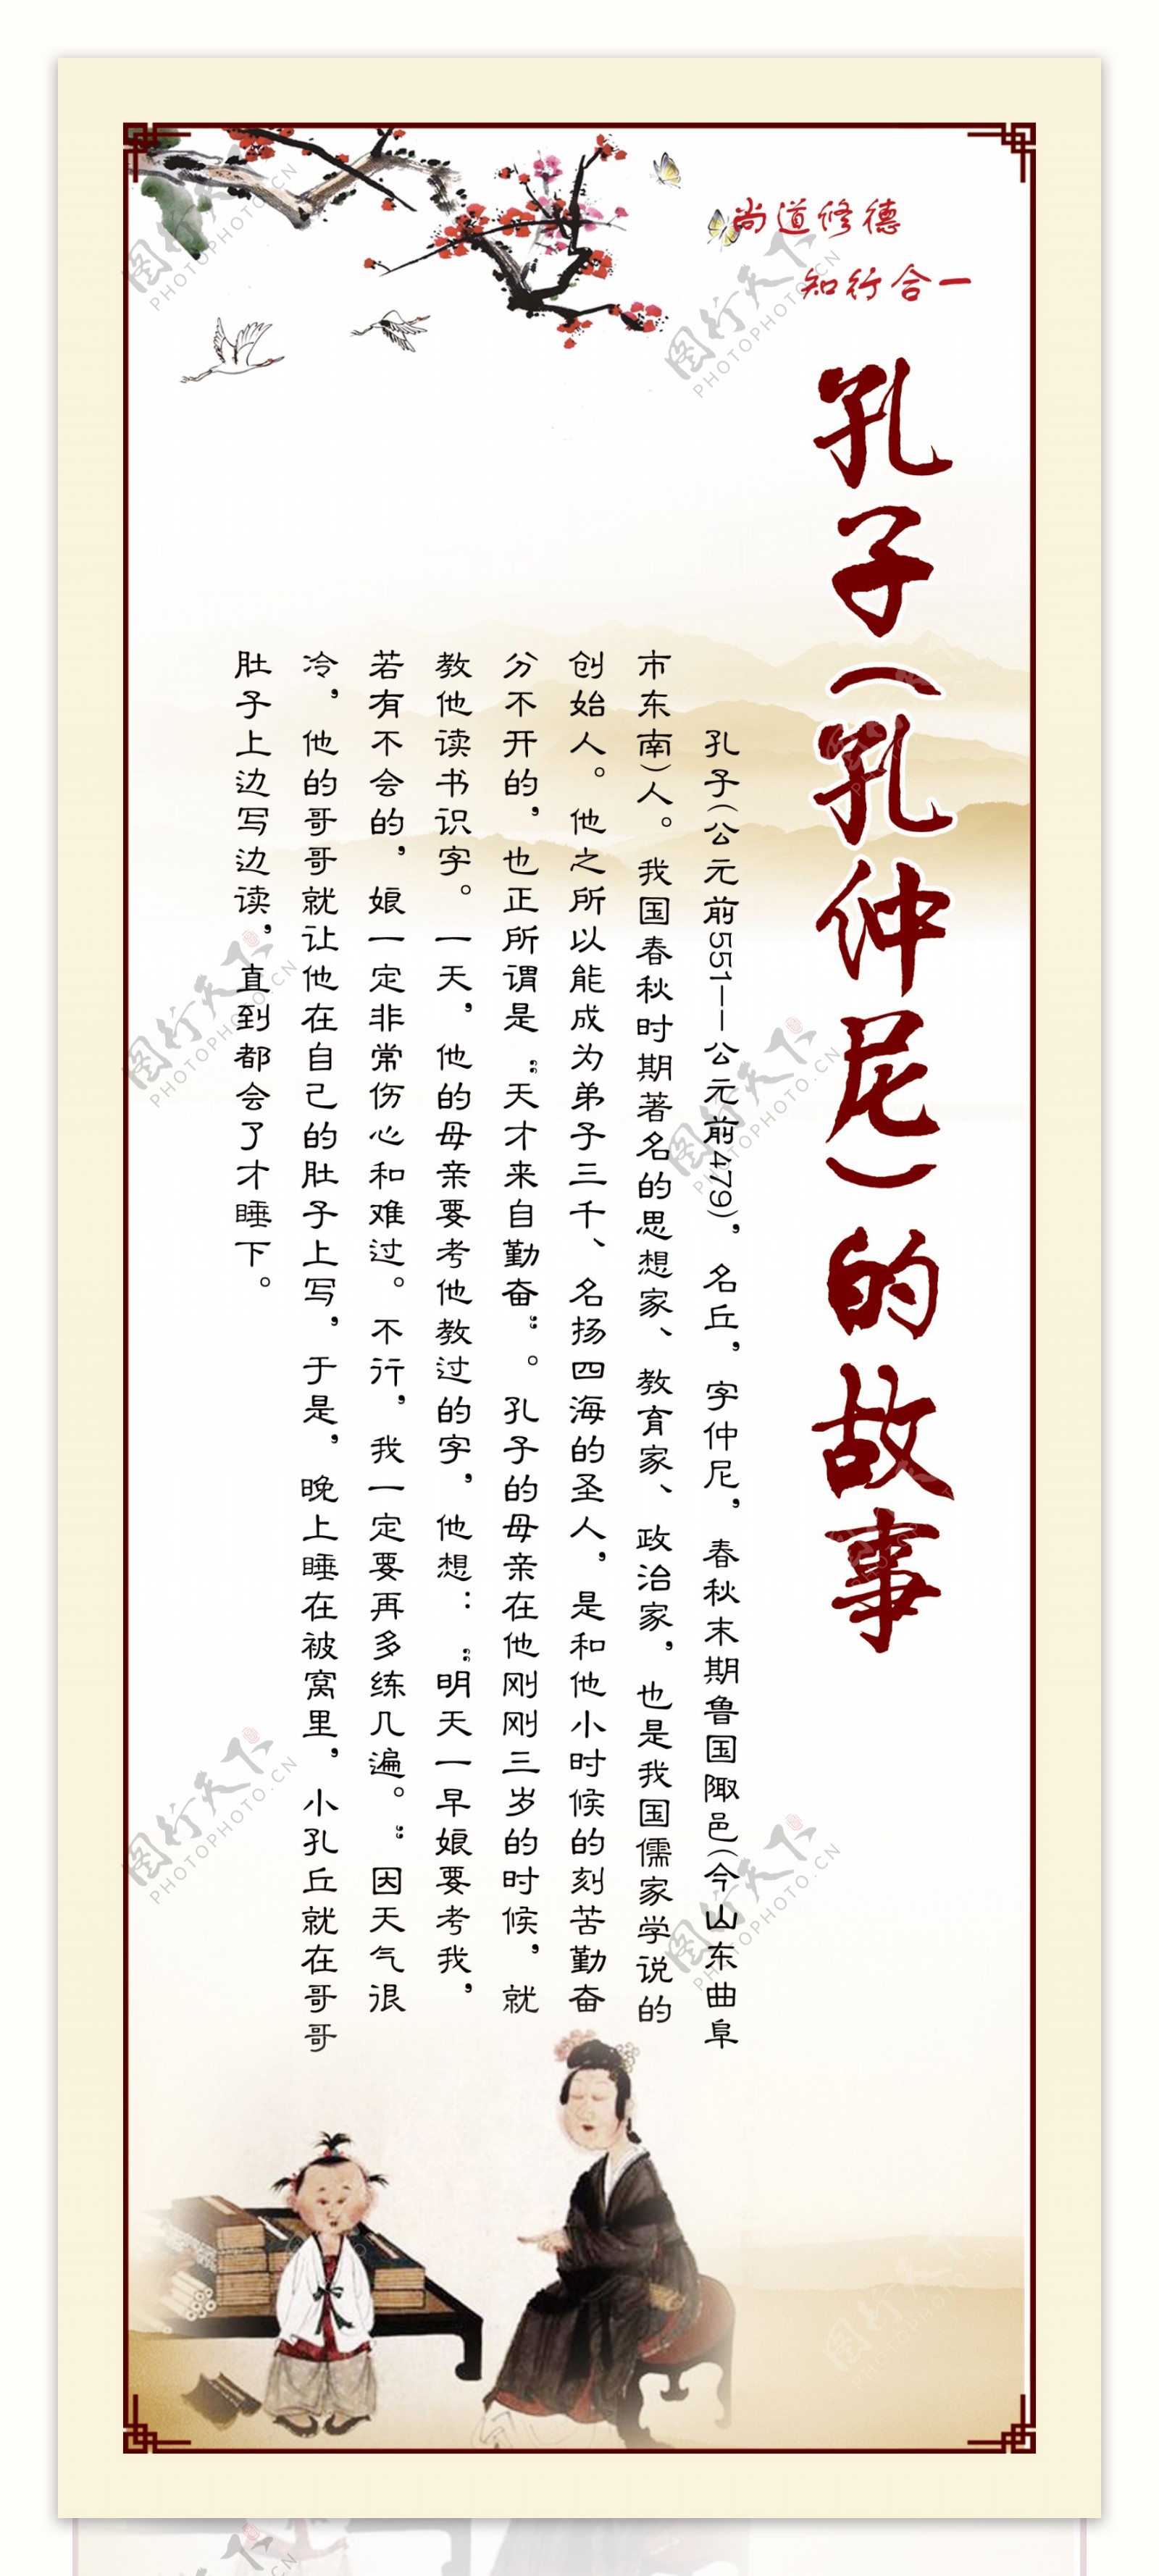 尚道修德
知行合一
孔子(孔仲尼)的故事
孔子(公元前551——公元前479)，名丘，字仲尼，春秋末期鲁国陬邑(今山东曲阜
市东南)人。我国春秋时期著名的思想家、教育家、政治家，也是我国儒家学说的
创始人。他之所以能成为弟子三千、名扬四海的圣人，是和他小时候的刻苦勤奋
分不开的，也正所谓是“天才来自勤奋”。孔子的母亲在他刚刚三岁的时候，就
教他读书识字。一天，他的母亲要考他教过的字，他想：“明天一早娘要考我，
若有不会的，娘一定非常伤心和难过。不行，我一定要再多练几遍。”因天气很
冷，他的哥哥就让他在自己的肚子上写，于是，晚上睡在被窝里，小孔丘就在哥哥
肚子上边写边读，直到都会了才睡下。
图行天下
PHOTOPHOTO.CN
图行天下
PHOTOPHOTO.CN
图行天下
PHOTOPHOTO.CN
图行天下
PHOTOPHOTO.CN
图行天下
PHOTOPHOTO.CN
图行天下
PHOTOPHOTO.CN